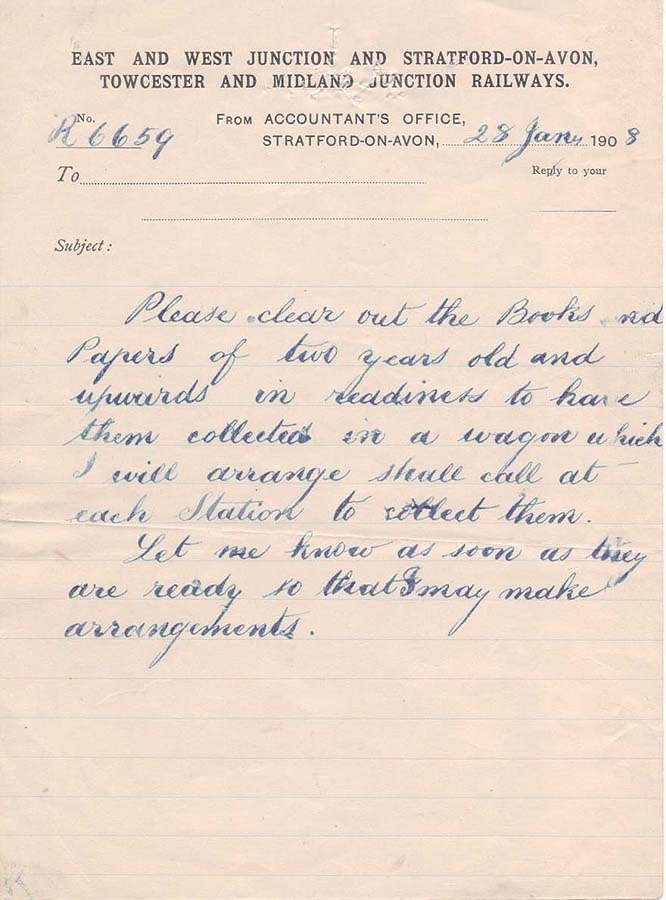 EAST AND WEST JUNCTION AND STRATFORD-ON-AVON,
TOWCESTER AND MIDLAND JUNCTION RAILWAYS.
No.
R6659
FROM ACCOUNTANT'S OFFICE,
STRATFORD-ON-AVON, 28 Jany 1908
To
Reply to your
Subject:
Please clear out the Books nd
Papers of two years old and
upwards in readiness to have
them collected in a wagon which
I will arrange shall call at
each Station to collect them.
Let me know as soon as they
are ready so that I may make
arrangements.